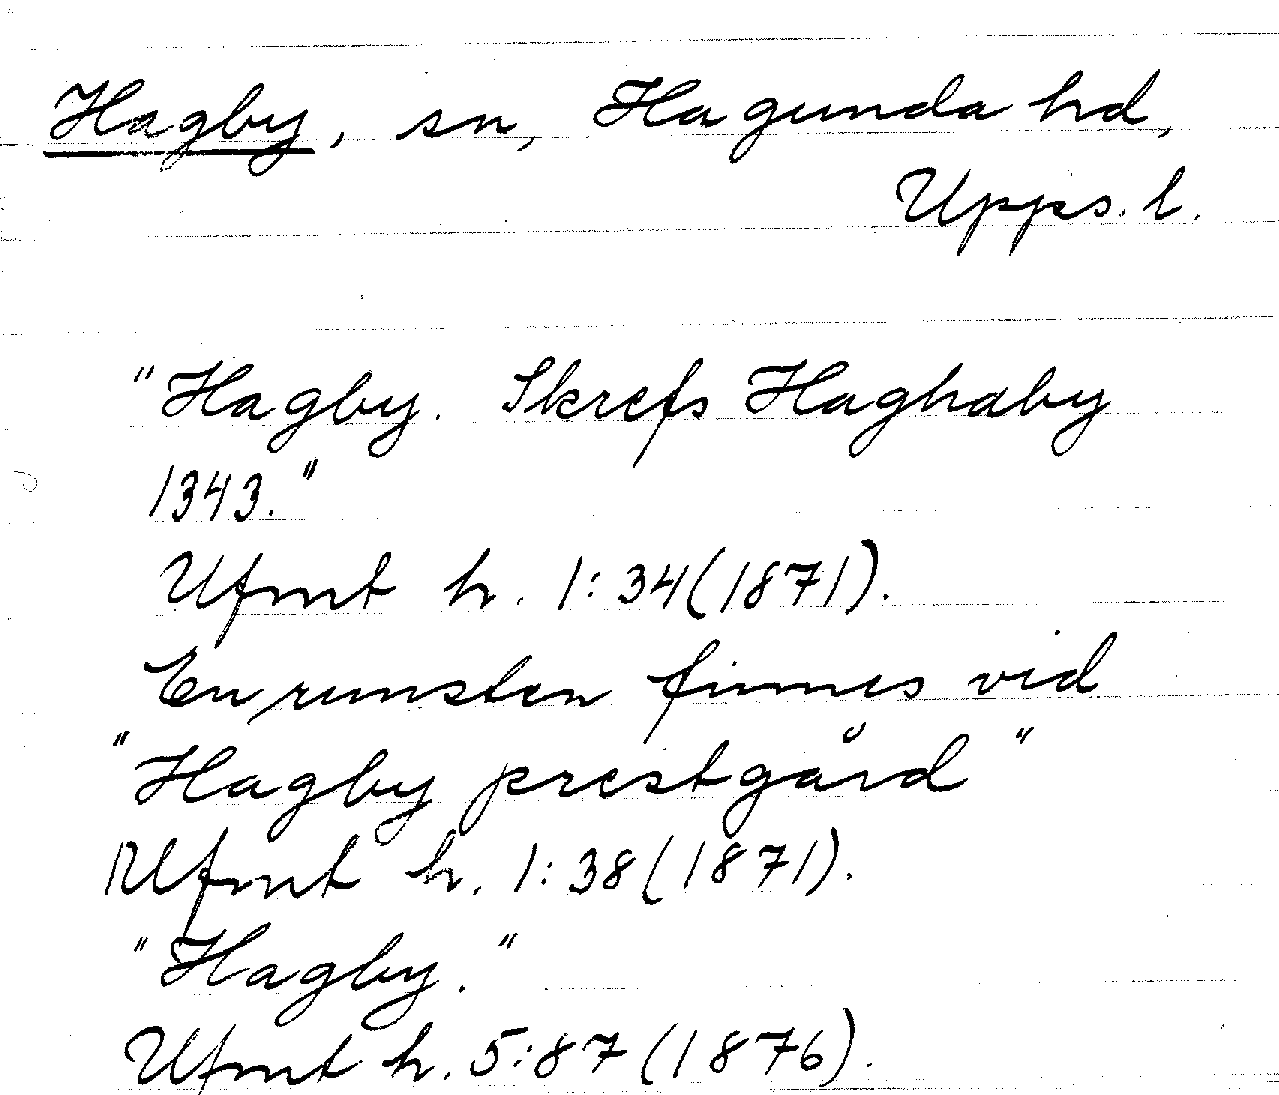 Hagby, sn, Hagunda hd,
Upps. l.
"Hagby. Skrefs Haghaby
1343."
Ufmt h. 1:34(1871).
En runsten finnes vid
"Hagby prestgård"
Ufmt h. 1:38(1871).
"Hagby."
Ufmt h. 5:87(1876).